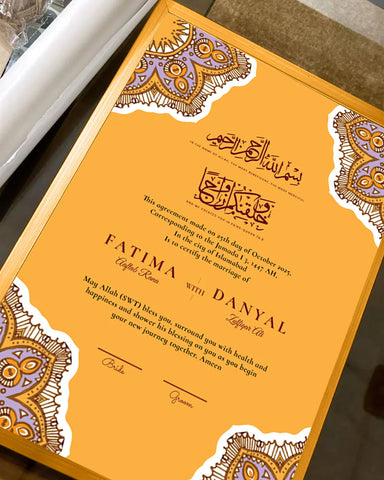 بسم الله الرحمن الرحيم
IN THE NAME OF ALLAH, THE MOST BENEFICENT, THE MOST MERCIFUL
وخلقنكم أزواجا
AND WE CREATED YOU IN PAIRS
This agreement made on 25th day of October 2025,
Corresponding to the Jumada I 3, 1447 AH.
In the city of Islamabad
Is to certify the marriage of
FATIMA WITH DANYAL
May Allah (SWT) bless you, surround you with health and
happiness and shower his blessing on you as you begin
your new journey together. Ameen
Bride
Groom